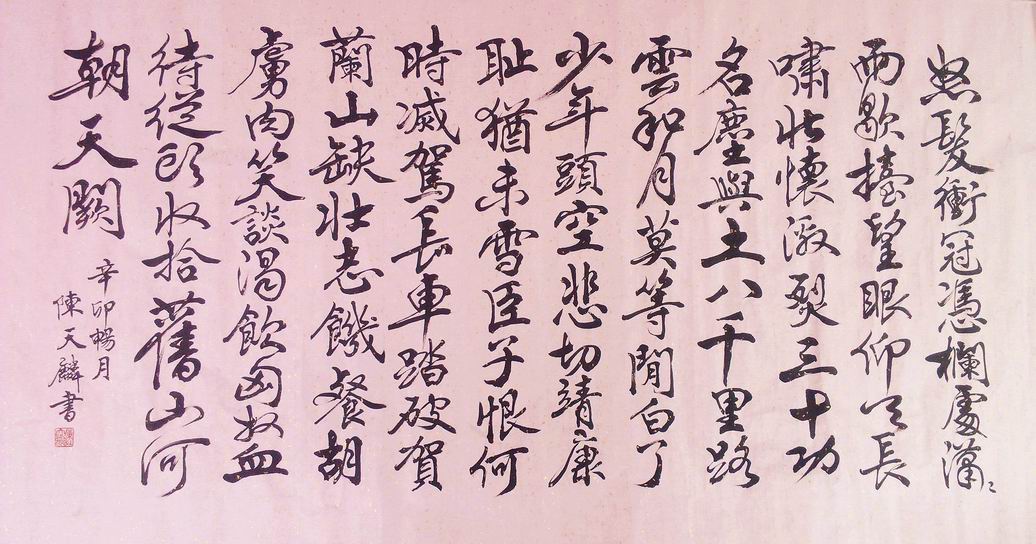 怒髮衝冠憑欄處瀟々
雨歇擡望眼仰天長
嘯壯懷激裂三十功
名塵與土八千里路
雲和月莫等閒白了
少年頭空悲切靖康
耻猶未雪臣子恨何
時滅駕長車踏破賀
蘭山缺壯志饑餐胡
虜肉笑談渴飲匈奴血
待從頭收拾舊山河
朝天闕
辛卯暢月
陳天麟書